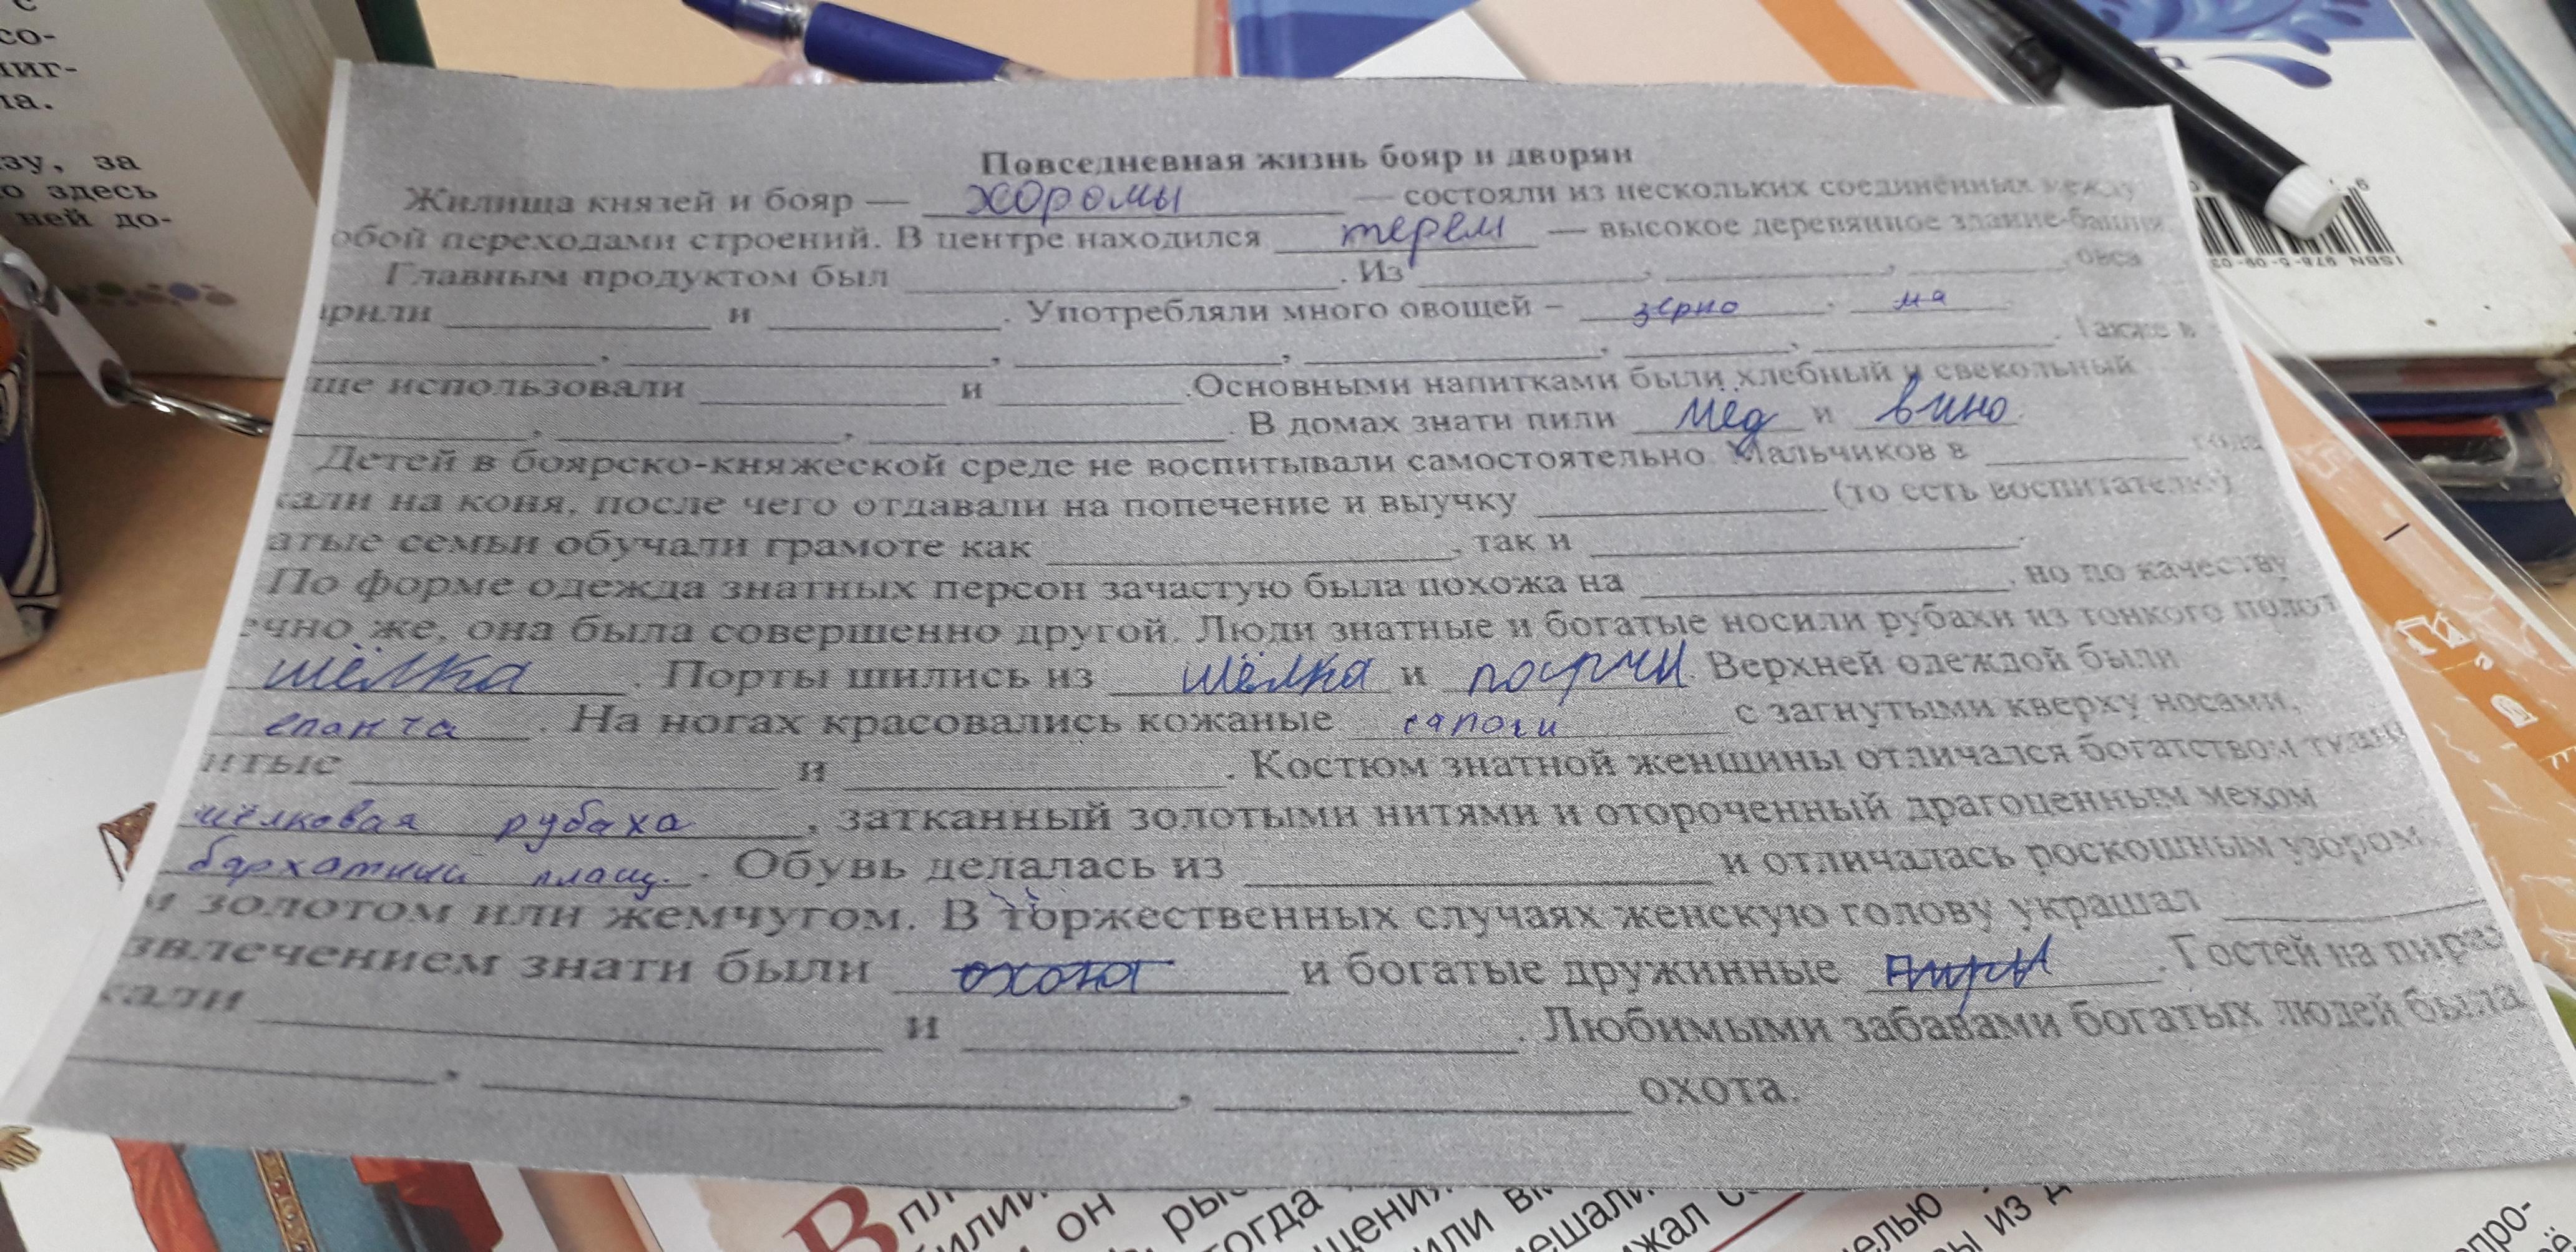 с
со-
ла.
зу, за
о здесь
ней до-
Повседневная жизнь бояр и дворян
Жилища князей и бояр — хоромы — состояли из нескольких соединённых между
обой переходами строений. В центре находился терем — высокое деревянное здание-башня
Главным продуктом был ____. Из ____, ____, ____, овса
арили ____ и ____. Употребляли много овощей – зерно, ма
____, ____, ____, ____, ____, ____. Также в
ще использовали ____ и ____. Основными напитками были хлебный и свекольный
____, ____, ____. В домах знати пили мёд и вино.
Детей в боярско-княжеской среде не воспитывали самостоятельно. Мальчиков в ____ года
кали на коня, после чего отдавали на попечение и выучку ____ (то есть воспитателю)
атые семьи обучали грамоте как ____, так и ____.
По форме одежда знатных персон зачастую была похожа на ____, но по качеству
ечно же, она была совершенно другой. Люди знатные и богатые носили рубахи из тонкого полот
шёлка. Порты шились из шёлка и парчи. Верхней одеждой были
епанча. На ногах красовались кожаные сапоги с загнутыми кверху носами,
итые ____ и ____. Костюм знатной женщины отличался богатством ткани
шёлковая рубаха, затканный золотыми нитями и отороченный драгоценным мехом
бархатный плащ. Обувь делалась из ____ и отличалась роскошным узором,
м золотом или жемчугом. В торжественных случаях женскую голову украшал ____
звлечением знати были охота и богатые дружинные пиры. Гостей на пирах
кали ____ и ____. Любимыми забавами богатых людей была
____, ____, ____ охота.
ISBN 978-5-09-02
В пл
он